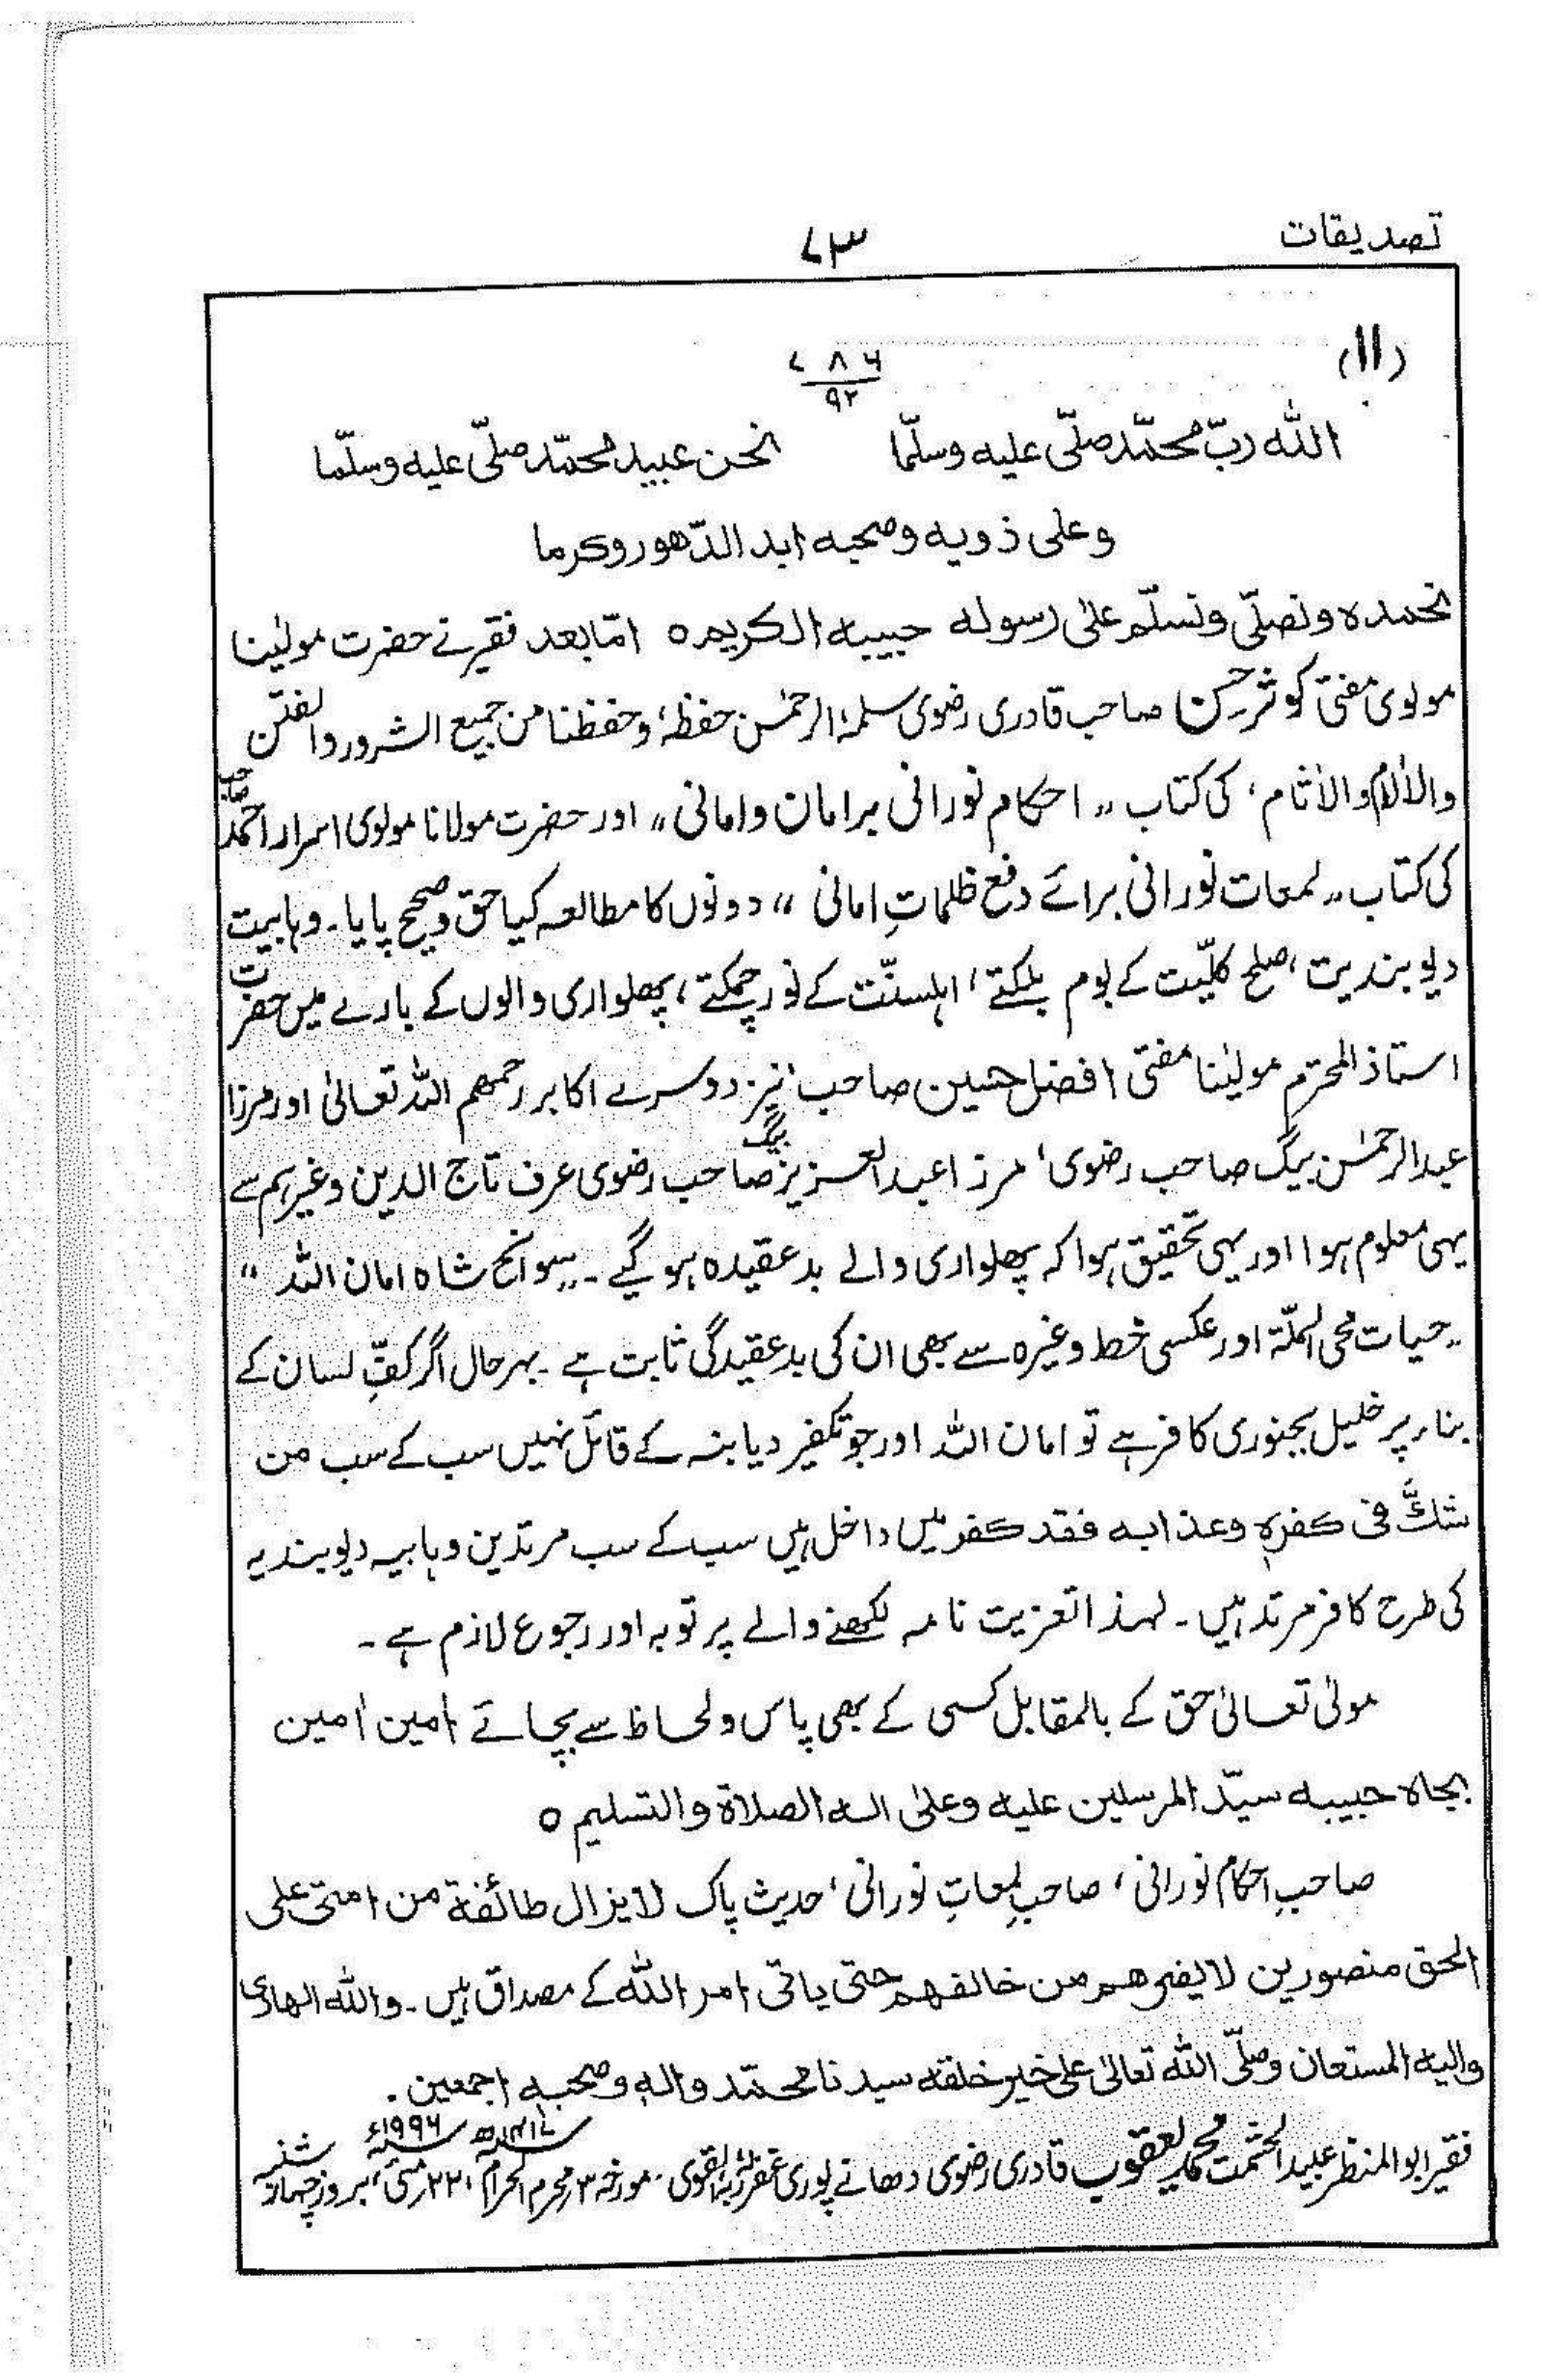 تصدیقات ۷۳
(۱۱)
۷۸۶
۹۲
اللہ ربّ محمّد صلّی علیہ وسلّما نحن عبید محمّد صلّی علیہ وسلّما
وعلی ذویہ وصحبہ ابد الدّھور وکرما
نحمدہ ونصلّی ونسلّم علیٰ رسولہ حبیبہ الکریم ہ امّا بعد فقیر نے حضرت مولیٰنا
مولوی مفتی کوثر حسن صاحب قادری رضوی سلمہٗ الرحمٰن حفظہٗ وحفظنا من جمیع الشرور والفتن
والاٰلام والاٰثام، کی کتاب ”احکام نورانی برامان وامانی“ اور حضرت مولانا مولوی اسرار احمد صاحب
کی کتاب ”لمعات نورانی برائے دفع ظلماتِ امانی“ دونوں کا مطالعہ کیا حق وصحیح پایا۔ وہابیت
دیوبندیت، صلح کلیّت کے بوم بلکتے، اہلسنّت کے نور چمکتے، پھلواری والوں کے بارے میں حضرت
استاذ المحترم مولیٰنا مفتی افضل حسین صاحب نیز دوسرے اکابر رحمھم اللہ تعالیٰ اور مرزا
عبدالرحمٰن بیگ صاحب رضوی، مرزا عبدالعزیز بیگ صاحب رضوی عرف تاج الدین وغیرہم سے
یہی معلوم ہوا اور یہی تحقیق ہوا کہ پھلواری والے بدعقیدہ ہوگیے۔ ”سوانح شاہ امان اللہ“
”حیات محی الملّۃ اور عکسی خط وغیرہ سے بھی ان کی بدعقیدگی ثابت ہے۔ بہرحال اگر کفِّ لسان کے
بناء پر خلیل بجنوری کافر ہے تو امان اللہ اور جو تکفیر دیابنہ کے قائل نہیں سب کے سب من
شكَّ فی کفرہٖ وعذابہ فقد کفر میں داخل ہیں سب کے سب مرتدین وہابیہ دیوبندیہ
کی طرح کافر مرتد ہیں۔ لہذا تعزیت نامہ لکھنے والے پر توبہ اور رجوع لازم ہے۔
مولیٰ تعالیٰ حق کے بالمقابل کسی کے بھی پاس ولحاظ سے بچائے اٰمین اٰمین
بجاہ حبیبہ سیّد المرسلین علیہ وعلیٰ اٰلہ الصلاۃ والتسلیم ہ
صاحبِ احکام نورانی، صاحبِ لمعاتِ نورانی، حدیث پاک لا یزال طائفۃ من امتی علی
الحق منصورین لا یضرھم من خالفھم حتی یاتی امر اللہ کے مصداق ہیں۔ واللہ الھادی
والیہ المستعان وصلّی اللہ تعالیٰ علی خیر خلقہ سیدنا محمّد واٰلہٖ وصحبہٖ اجمعین۔
فقیر ابوالمنظر عبید الحشمت محمد یعقوب قادری رضوی دھانے پوری غفرلہٗ ربہ القوی۔ مورخہ ۳ محرم الحرام ۱۴۱۷ھ ۲۲ مئی ۱۹۹۶ء بروز چہار شنبہ